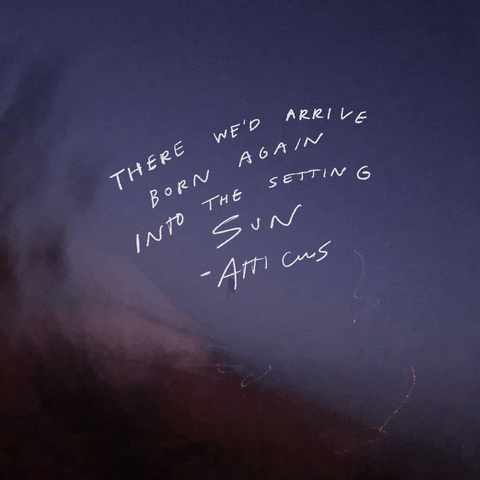 THERE WE'D ARRIVE
BORN AGAIN
INTO THE SETTING
SUN
-ATTICUS